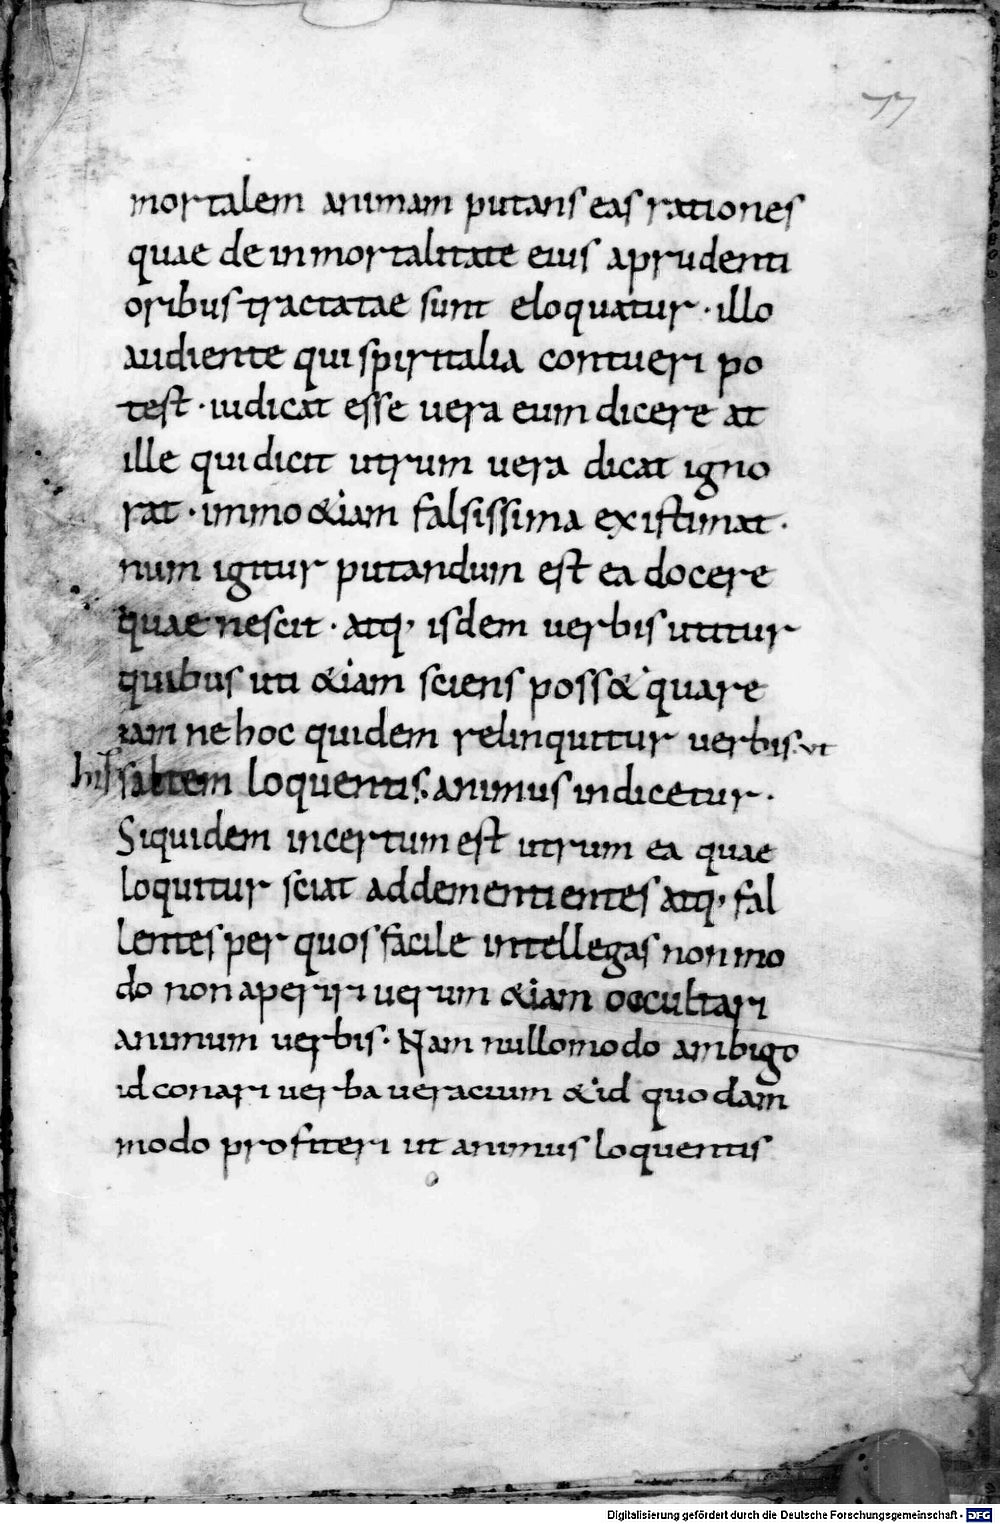 77
mortalem animam putans eas rationes
quae de inmortalitate eius aprudenti
oribus tractatae sunt eloquatur · illo
audiente qui spiritalia contueri po
test · iudicat esse vera eum dicere at
ille qui dicit utrum vera dicat igno
rat · immo &iam falsissima existimat ·
num igitur putandum est ea docere
quae nescit · atq, isdem uerbis utitur
quibus uti &iam sciens poss& quare
iam ne hoc quidem relinquitur uerbis · ut
his saltem loquentis animus indicetur ·
Siquidem incertum est utrum ea quae
loquitur sciat addementientes atq, fal
lentes per quos facile intellegas non mo
do non aperiri uerum &iam occultari
animum uerbis · Nam nullomodo ambigo
id conari uerba ueracium & id quodam
modo profiteri ut animus loquentis
Digitalisierung gefördert durch die Deutsche Forschungsgemeinschaft - DFG